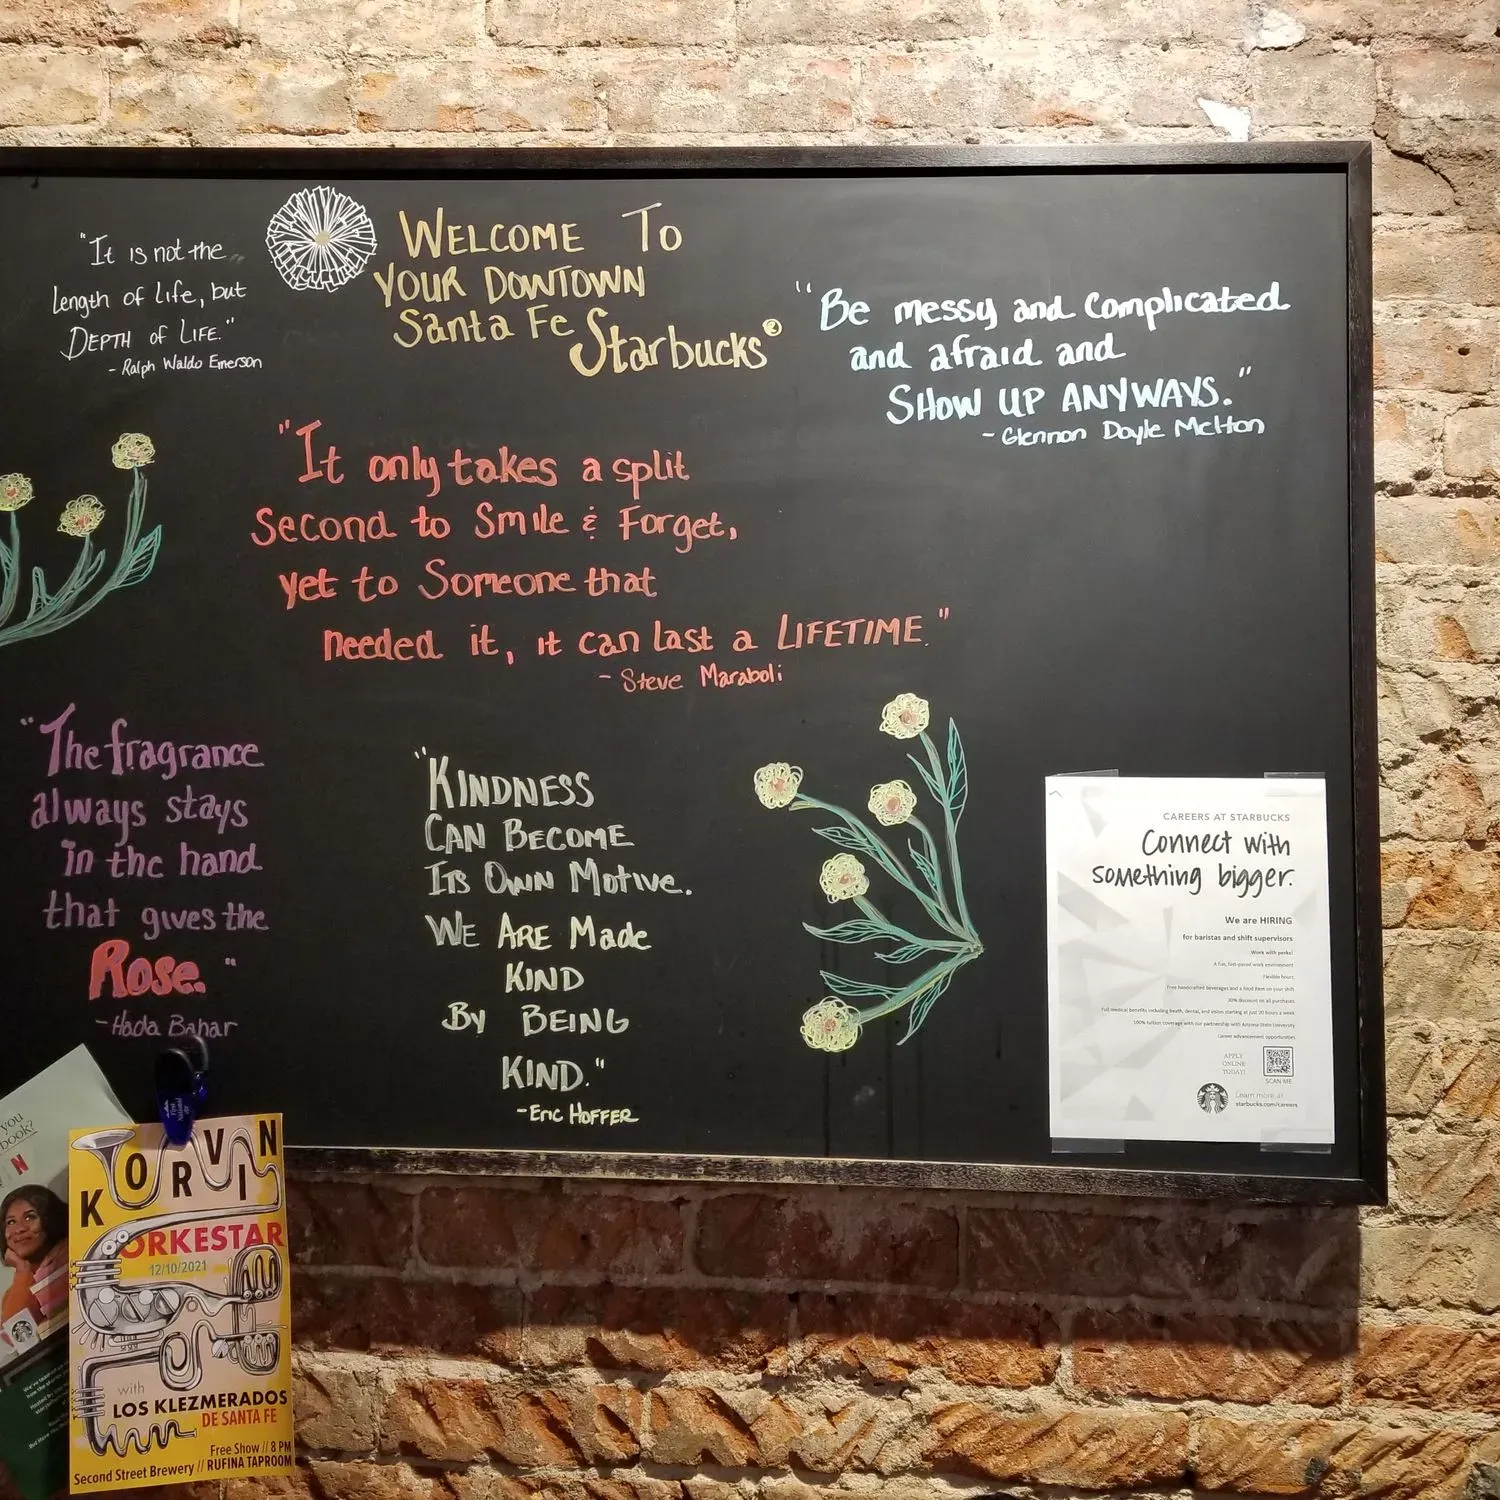 "It is not the
length of life, but
DEPTH of LIFE."
- Ralph Waldo Emerson
WELCOME TO
YOUR DOWTOWN
Santa Fe Starbucks®
"Be messy and complicated
and afraid and
SHOW UP ANYWAYS."
- Glennon Doyle Melton
"It only takes a split
Second to Smile & Forget,
yet to Someone that
needed it, it can last a LIFETIME."
- Steve Maraboli
"The fragrance
always stays
in the hand
that gives the
Rose."
- Hada Bahar
"KINDNESS
CAN BECOME
ITS OWN MOTIVE.
WE ARE Made
KIND
BY BEING
KIND."
- Eric HOFFER
CAREERS AT STARBUCKS
Connect with
something bigger.
We are HIRING
for baristas and shift supervisors
Work with perks!
A fun, fast-paced work environment
Flexible hours
Free handcrafted beverages and a food item on your shift
30% discount on all purchases
Full medical benefits including health, dental, and vision starting at just 20 hours a week
100% tuition coverage with our partnership with Arizona State University
Career advancement opportunities
APPLY
ONLINE
TODAY!
SCAN ME
Learn more at
starbucks.com/careers
you
book?
N
First
National
KORVIN
ORKESTAR
12/10/2021
with
LOS KLEZMERADOS
DE SANTA FE
Free Show // 8 PM
Second Street Brewery // RUFINA TAPROOM